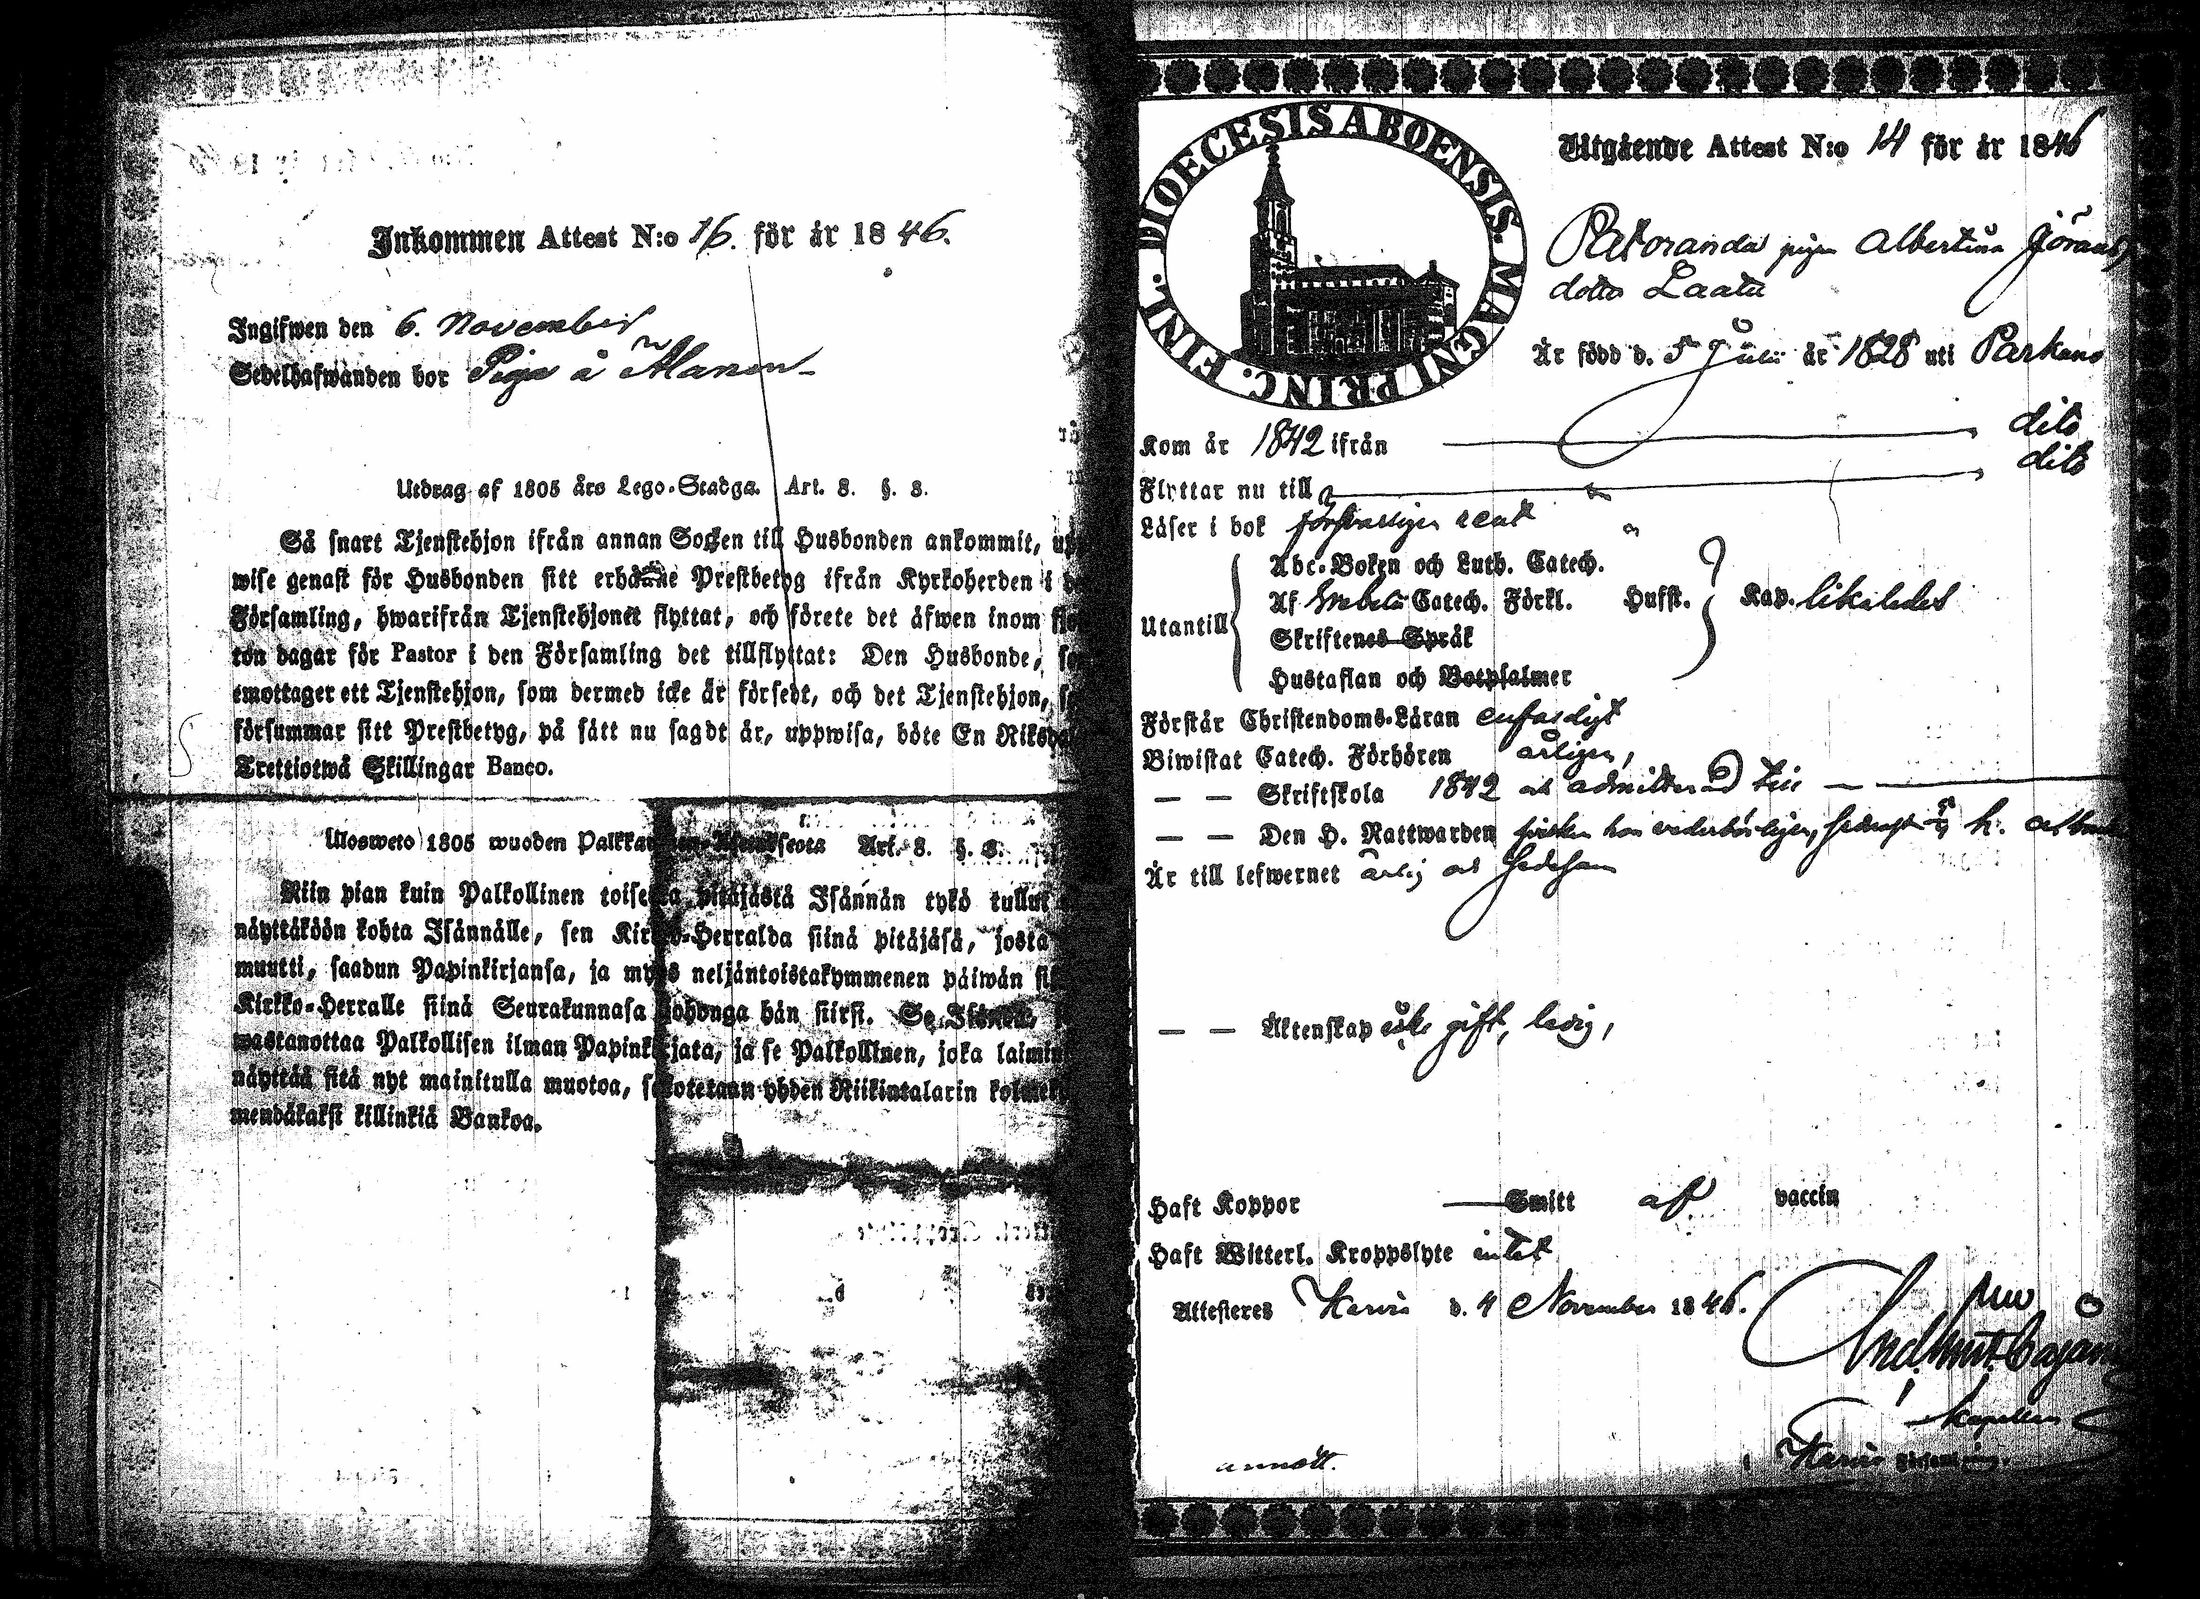 Inkommen Attest N:o 16. för år 1846.
Ingifwen den 6. November
Sedelhafwanden bor Piga å Alanen
Utdrag af 1805 års Lego-Stadga. Art. 8. §. 3.
Så snart Tjenstehjon ifrån annan Socken till Husbonden ankommit,
wise genast för Husbonden sitt erhållne Prestbetyg ifrån Kyrkoherden i
Församling, hwarifrån Tjenstehjonet flyttat, och förete det äfwen inom
ton dagar för Pastor i den Församling det tillflyttat: Den Husbonde,
emottager ett Tjenstehjon, som dermed icke är försedt, och det Tjenstehjon,
försummar sitt Prestbetyg, på sätt nu sagdt är, uppwisa, böte En
Trettiotwå Skillingar Banco.
Ulosweto 1805 wuoden Art. 8. §. 3.
Niin pian kuin Palkollinen pitäjästä Isännän tykö tullut
näyttäköön kohta Isännälle, sen Kirkko-Herralda siinä pitäjäsä, josta
muutti, saadun Papinkirjansa, ja myös neljäntoistakymmenen päiwän
Kirkko-Herralle siinä Seurakunnasa johonga hän siirsi. Se Isäntä,
wastanottaa Palkollisen ilman Papinkirjata, ja se Palkollinen, joka
näyttää sitä nyt mainitulla muotoa, sakotetaan yhden Riikintalarin
mendäkaksi killinkiä Bankoa.
DIOECESIS ABOENSIS. MAGNI PRINC. FINL.
Utgående Attest N:o 14 för år 1846
pigan Albertina Jörans
dotter Laatu
Är född d. 5 Juli år 1828 uti Parkano
Kom år 1842 ifrån dito
Flyttar nu till dito
Läser i bok förswarligen rent
Abc-Boken och Luth. Catech.
Af Svebelii Catech. Förkl. Husst. Kap. likaledes
Utantill
Skriftenes Språk
Hustaflan och Botpsalmer
Förstår Christendoms-Läran enfaldigt
Biwistat Catech. Förhören årligen,
— — Skriftskola 1842 och admitterad till
— — Den H. Nattwarden hon vederbörligen, h.
Är till lefwernet ärlig och sedesam
— — Äktenskap icke gift, ledig,
Haft Koppor Smitt af vaccin
Haft Witterl. Kroppslyte intet
Attesteras Karvia d. 4 November 1846.
And. Wilh. Cajan
kapellan
annött.
Karvia Församling.